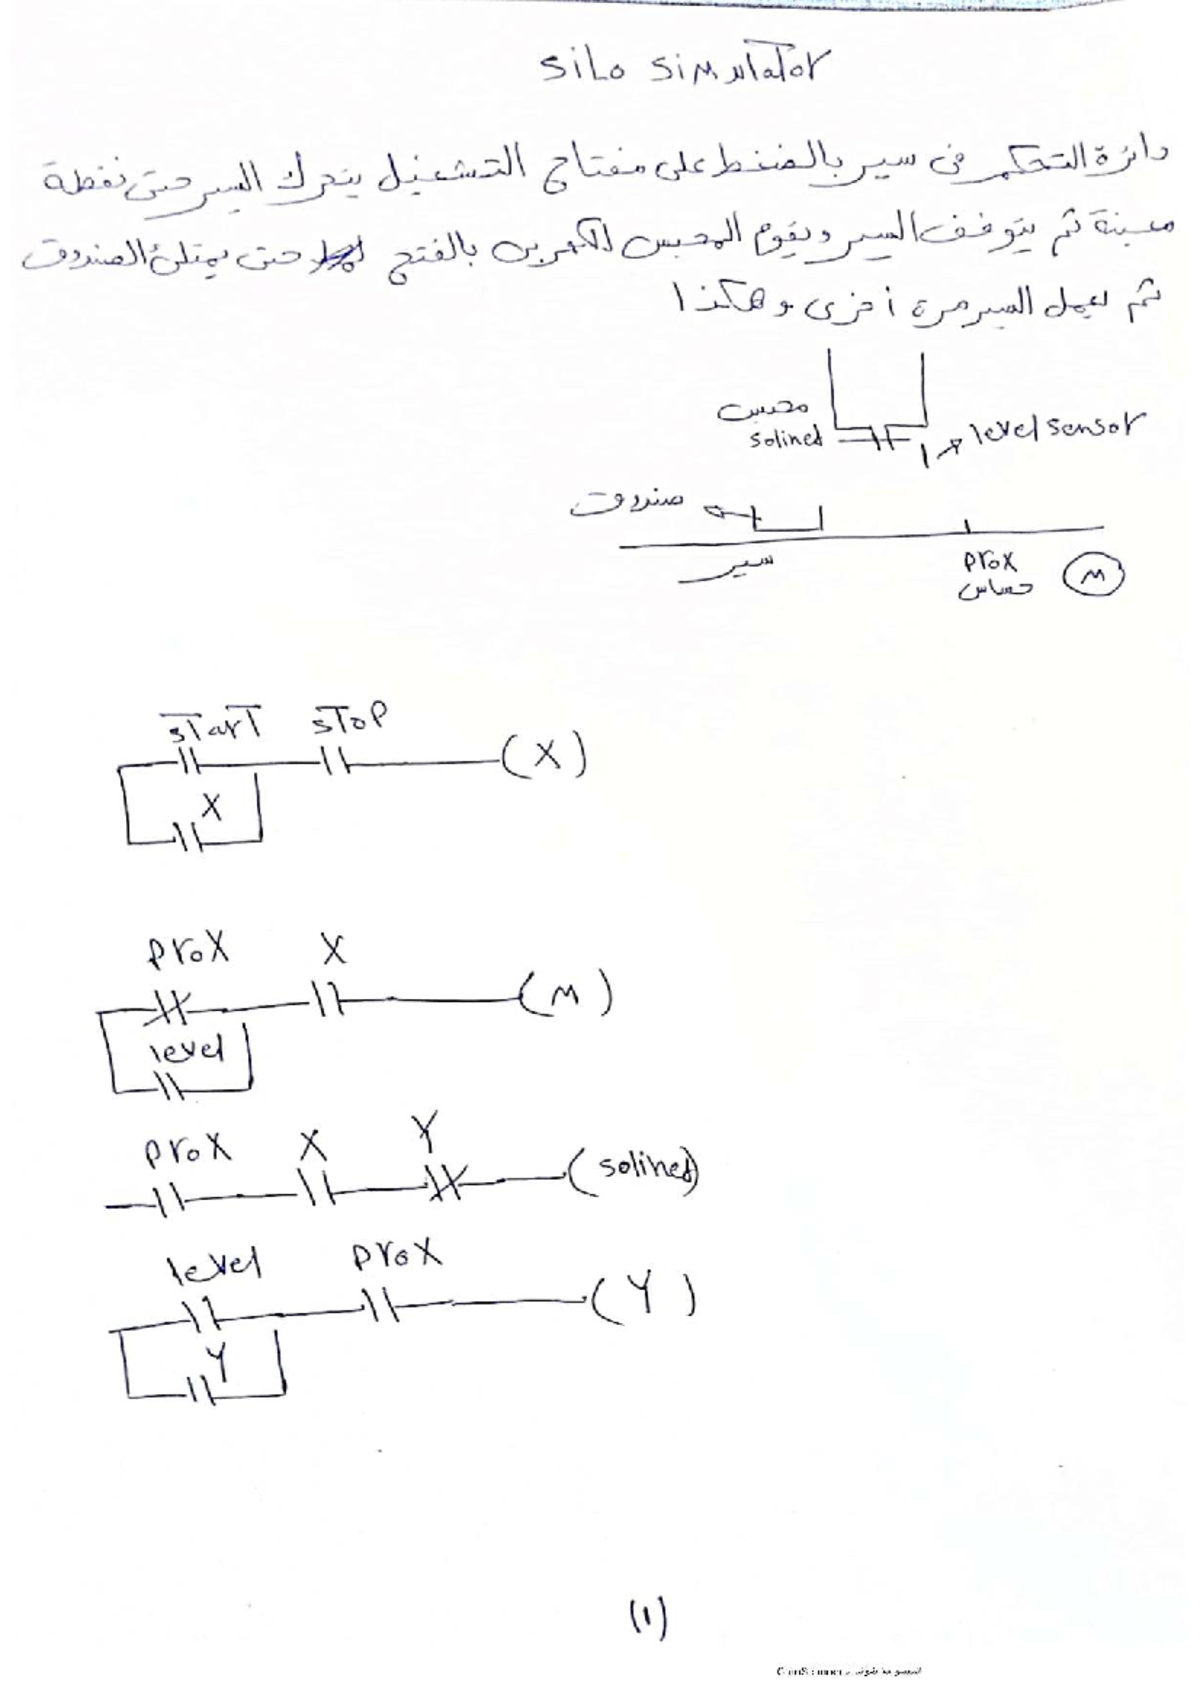 siLo simulator
دائرة التحكم فى سير بالضغط على مفتاح التشغيل يتحرك السير حتى نقطة
معينة ثم يتوقف السير ويقوم المحبس الكهربى بالفتح حتى يمتلئ الصندوق
ثم يعمل السير مرة أخرى وهكذا
محبس
solined
level sensor
صندوق
سير
prox
حساس
M
starT sToP
(X)
X
proX X
(M)
level
proX X Y
(solined)
level proX
(Y)
Y
(1)
CamScanner